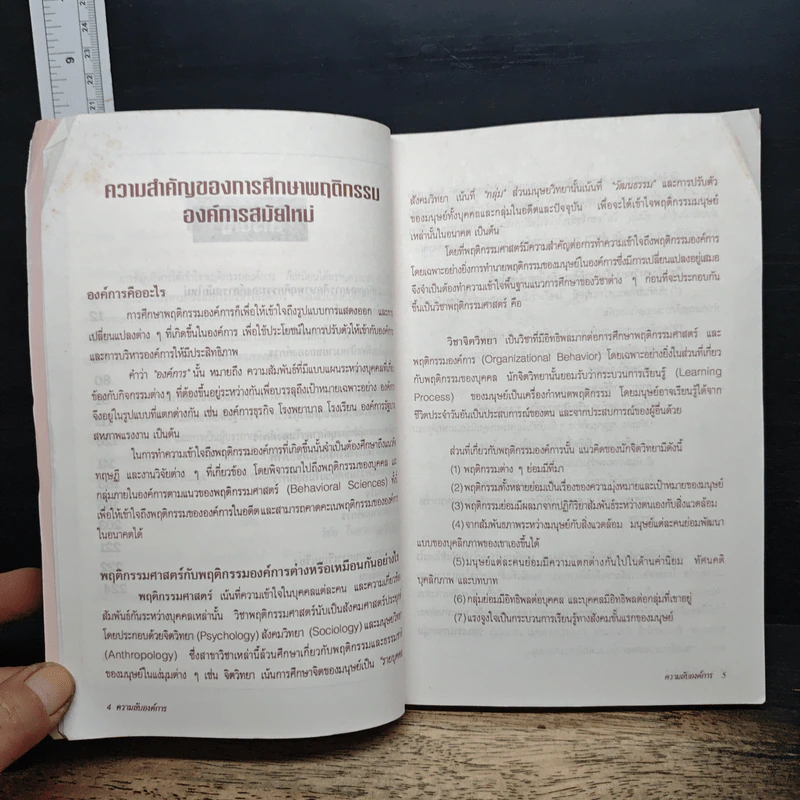 ความสำคัญของการศึกษาพฤติกรรม
องค์การสมัยใหม่
องค์การคืออะไร
การศึกษาพฤติกรรมองค์การก็เพื่อให้เข้าใจถึงรูปแบบการแสดงออก และการ
เปลี่ยนแปลงต่าง ๆ ที่เกิดขึ้นในองค์การ เพื่อใช้ประโยชน์ในการปรับตัวให้เข้ากับองค์การ
และการบริหารองค์การให้มีประสิทธิภาพ
คำว่า "องค์การ" นั้น หมายถึง ความสัมพันธ์ที่มีแบบแผนระหว่างบุคคลที่เกี่ยว
ข้องกับกิจกรรมต่างๆ ที่ต้องขึ้นอยู่ระหว่างกันเพื่อบรรลุถึงเป้าหมายเฉพาะอย่าง องค์การ
จึงอยู่ในรูปแบบที่แตกต่างกัน เช่น องค์การธุรกิจ โรงพยาบาล โรงเรียน องค์การรัฐบาล
สหภาพแรงงาน เป็นต้น
ในการทำความเข้าใจถึงพฤติกรรมองค์การที่เกิดขึ้นนั้นจำเป็นต้องศึกษาถึงแนวคิด
ทฤษฎี และงานวิจัยต่าง ๆ ที่เกี่ยวข้อง โดยพิจารณาไปถึงพฤติกรรมของบุคคล และ
กลุ่มภายในองค์การตามแนวของพฤติกรรมศาสตร์ (Behavioral Sciences) ทั้งนี้
เพื่อให้เข้าใจถึงพฤติกรรมขององค์การในอดีต และสามารถคาดคะเนพฤติกรรมขององค์การ
ในอนาคตได้
พฤติกรรมศาสตร์กับพฤติกรรมองค์การต่างหรือเหมือนกันอย่างไร
พฤติกรรมศาสตร์ เน้นที่ความเข้าใจในบุคคลแต่ละคน และความเกี่ยวข้อง
สัมพันธ์กันระหว่างบุคคลเหล่านั้น วิชาพฤติกรรมศาสตร์นับเป็นสังคมศาสตร์ประยุกต์
โดยประกอบด้วยจิตวิทยา (Psychology) สังคมวิทยา (Sociology) และมนุษยวิทยา
(Anthropology) ซึ่งสาขาวิชาเหล่านี้ล้วนศึกษาเกี่ยวกับพฤติกรรมและธรรมชาติ
ของมนุษย์ในแง่มุมต่าง ๆ เช่น จิตวิทยา เน้นการศึกษาจิตของมนุษย์เป็น "รายบุคคล"
4 ความลับองค์การ
สังคมวิทยา เน้นที่ "กลุ่ม" ส่วนมนุษยวิทยานั้นเน้นที่ "วัฒนธรรม" และการปรับตัว
ของมนุษย์ทั้งบุคคลและกลุ่มในอดีตและปัจจุบัน เพื่อจะได้เข้าใจพฤติกรรมมนุษย์
เหล่านั้นในอนาคต เป็นต้น
โดยที่พฤติกรรมศาสตร์มีความสำคัญต่อการทำความเข้าใจถึงพฤติกรรมองค์การ
โดยเฉพาะอย่างยิ่งการทำนายพฤติกรรมของมนุษย์ในองค์การซึ่งมีการเปลี่ยนแปลงอยู่เสมอ
จึงจำเป็นต้องทำความเข้าใจพื้นฐานแนวการศึกษาของวิชาต่าง ๆ ก่อนที่จะประกอบกัน
ขึ้นเป็นวิชาพฤติกรรมศาสตร์ คือ
วิชาจิตวิทยา เป็นวิชาที่มีอิทธิพลมากต่อการศึกษาพฤติกรรมศาสตร์ และ
พฤติกรรมองค์การ (Organizational Behavior) โดยเฉพาะอย่างยิ่งในส่วนที่เกี่ยว
กับพฤติกรรมของบุคคล นักจิตวิทยานั้นยอมรับว่ากระบวนการเรียนรู้ (Learning
Process) ของมนุษย์เป็นเครื่องกำหนดพฤติกรรม โดยมนุษย์อาจเรียนรู้ได้จาก
ชีวิตประจำวันอันเป็นประสบการณ์ของตน และจากประสบการณ์ของผู้อื่นด้วย
ส่วนที่เกี่ยวกับพฤติกรรมองค์การนั้น แนวคิดของนักจิตวิทยามีดังนี้
(1) พฤติกรรมต่าง ๆ ย่อมมีที่มา
(2) พฤติกรรมทั้งหลายย่อมเป็นเรื่องของความมุ่งหมายและเป้าหมายของมนุษย์
(3) พฤติกรรมย่อมมีผลมาจากปฏิกิริยาสัมพันธ์ระหว่างตนเองกับสิ่งแวดล้อม
(4) จากสัมพันธภาพระหว่างมนุษย์กับสิ่งแวดล้อม มนุษย์แต่ละคนย่อมพัฒนา
แบบของบุคลิกภาพของเขาเองขึ้นได้
(5) มนุษย์แต่ละคนย่อมมีความแตกต่างกันไปในด้านค่านิยม ทัศนคติ
บุคลิกภาพ และบทบาท
(6) กลุ่มย่อมมีอิทธิพลต่อบุคคล และบุคคลมีอิทธิพลต่อกลุ่มที่เขาอยู่
(7) แรงจูงใจเป็นกระบวนการเรียนรู้ทางสังคมขั้นแรกของมนุษย์
ความลับองค์การ 5
9
24
23
22
21